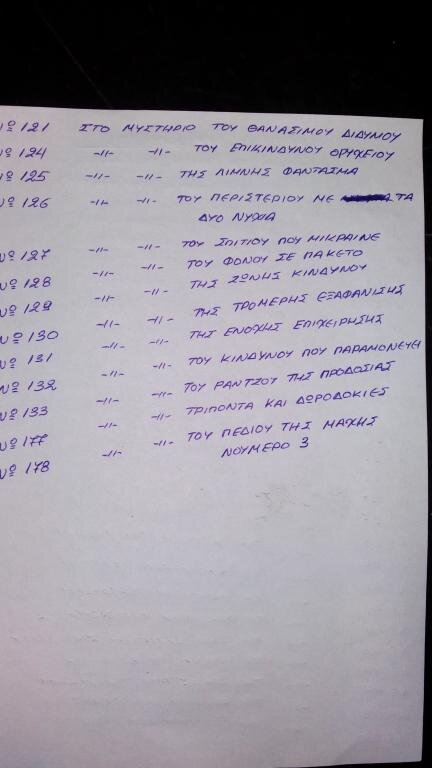 Νº 121 ΣΤΟ ΜΥΣΤΗΡΙΟ ΤΟΥ ΘΑΝΑΣΙΜΟΥ ΔΙΔΥΜΟΥ
Νº 124 -//- -//- ΤΟΥ ΕΠΙΚΙΝΔΥΝΟΥ ΟΡΥΧΕΙΟΥ
Νº 125 -//- -//- ΤΗΣ ΛΙΜΝΗΣ ΦΑΝΤΑΣΜΑ
Νº 126 -//- -//- ΤΟΥ ΠΕΡΙΣΤΕΡΙΟΥ ΜΕ ΤΑ
ΔΥΟ ΝΥΧΙΑ
Νº 127 -//- -//- ΤΟΥ ΣΠΙΤΙΟΥ ΠΟΥ ΜΙΚΡΑΙΝΕ
Νº 128 -//- -//- ΤΟΥ ΦΟΝΟΥ ΣΕ ΠΑΚΕΤΟ
Νº 129 -//- -//- ΤΗΣ ΖΩΝΗΣ ΚΙΝΔΥΝΟΥ
Νº 130 -//- -//- ΤΗΣ ΤΡΟΜΕΡΗΣ ΕΞΑΦΑΝΙΣΗΣ
Νº 131 -//- -//- ΤΗΣ ΕΝΟΧΗΣ ΕΠΙΧΕΙΡΗΣΗΣ
Νº 132 -//- -//- ΤΟΥ ΚΙΝΔΥΝΟΥ ΠΟΥ ΠΑΡΑΜΟΝΕΥΕΙ
Νº 133 -//- -//- ΤΟΥ ΡΑΝΤΖΟΥ ΤΗΣ ΠΡΟΔΟΣΙΑΣ
Νº 177 -//- -//- ΤΡΙΠΟΝΤΑ ΚΑΙ ΔΩΡΟΔΟΚΙΕΣ
Νº 178 -//- -//- ΤΟΥ ΠΕΔΙΟΥ ΤΗΣ ΜΑΧΗΣ
ΝΟΥΜΕΡΟ 3